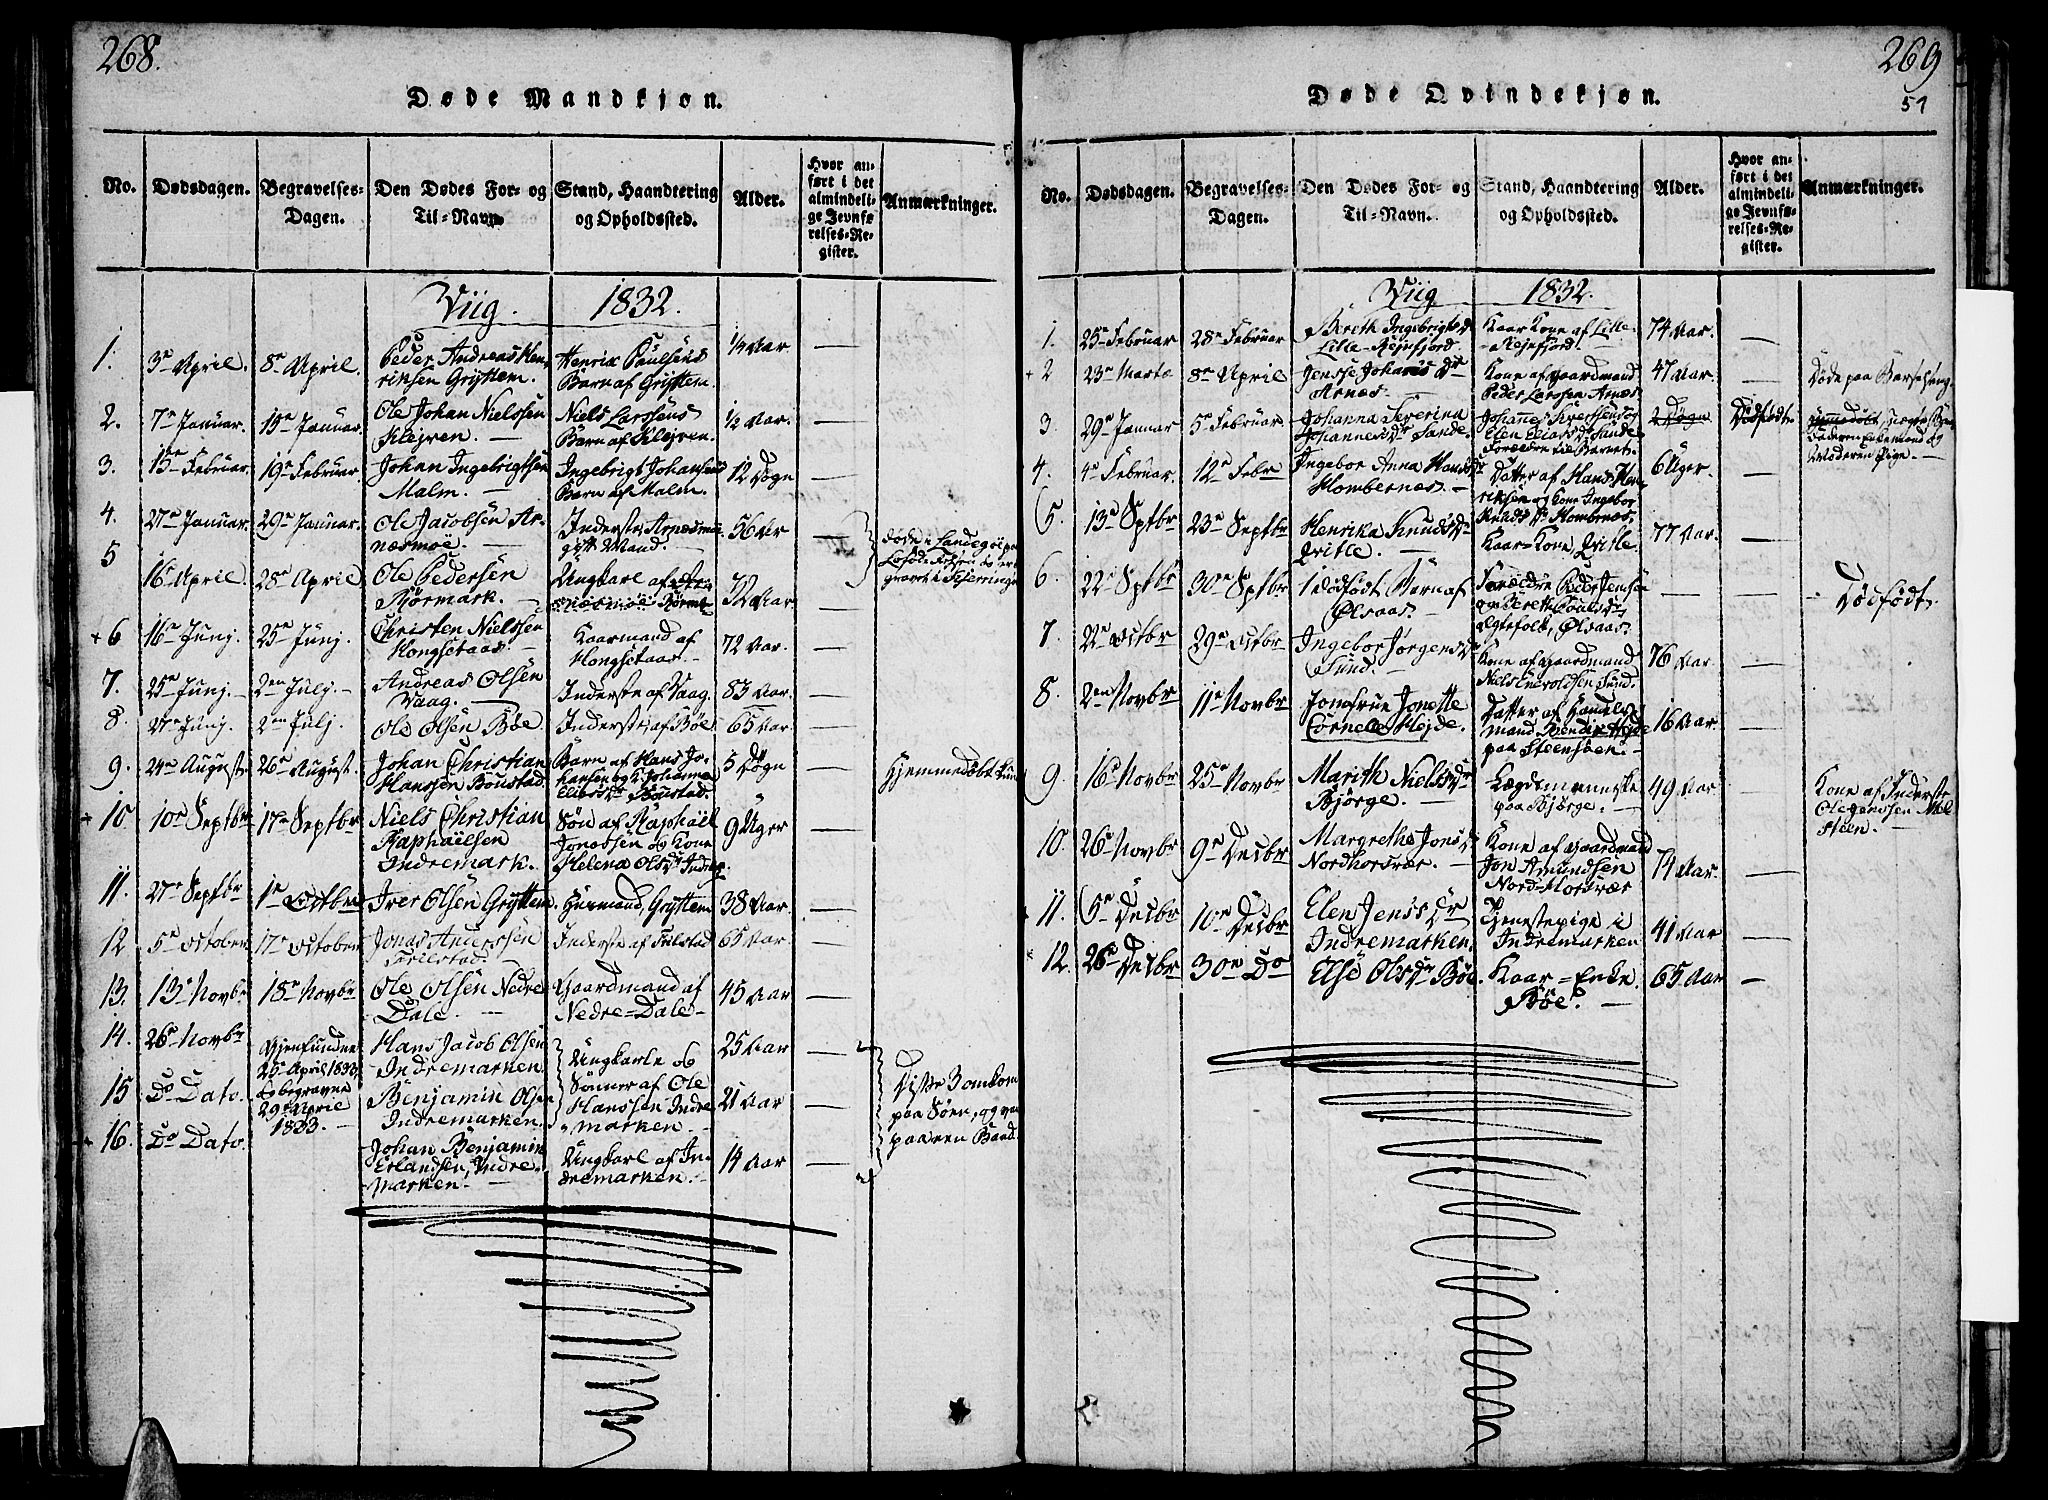 268.
Døde Mandkjøn.
No.
Dødsdagen.
Begravelses-
Dagen.
Den Dødes For- og
Til-Navn
Stand, Haandtering
og Opholdssted.
Alder.
Hvor an-
ført i det
almindeli-
ge Jevnfø-
relses-Re-
gister.
Anmærkninger.
Viig. 1832.
1. 3de April. 8de April.
Peder Andreas Hen-
riksen Gryttem.
Henrik Paulsens
Barn af Gryttem.
1/4 Aar
2. 7de Januar. 15de Januar.
Ole Johan Nielssen
Klejven.
Niels Larssens
Barn af Klejven.
1/2 Aar.
3. 13de Februar. 19de Februar.
Johan Ingebrigtsen
Malm.
Ingebrigt Johansens
Barn af Malm.
12 Døgn
4. 27de Januar. 29de Januar.
Ole Jacobsen Ar-
næsmoe.
Inderste Arnæsmoe
gift Mand.
56 Aar
5 16de April. 28de April.
Ole Pedersen
Bjørmark.
Ungkarl af
32 Aar
døde i Landegø
6 16de Junj. 25de Junj.
Christen Nielssen
Hongsetaas.
Kaarmand af
Hongsetaas.
72 Aar.
7. 25de Junj. 2den Julj.
Andreas Olsen
Vaag.
Inderste af Vaag.
83 Aar.
8. Junj. 2den Julj.
Ole Olsen Bøe.
Inderste af Bøe
65 Aar
9. 24de August. 26de August.
Johan Christian
Hanssen Boustad.
Barn af Hans Jo-
hansen og K. Johanna
Eliasdr Boustad.
5 Døgn
Hjemmedøbt
10 10de Septbr 17de Septbr
Niels Christian
Raphaëlsen
Indremark.
Søn af Raphaël
Jonassen og Kone
Helena Olsdr Indrem.
9 Uger
11. 27de Septbr 1ste Octbr
Iver Olsen Gryttem.
Huusmand, Gryttem
38 Aar.
12 5de October. 17de October
Jonas Anderssen
Inderste af
65 Aar.
13. 13de Novbr 18de Novbr
Ole Olsen Nedre
Dale.
Gaardmand af
Nedre-Dale
45 Aar
14. 26de Novbr
Gjenfundne
25de April 1833,
og begravne
29de April
1833.
Hans Jacob Olsen
Indremarken.
Ungkarle og
Sønner af Ole
Hanssen Indre
marken.
25 Aar
15 Do Dato.
Benjamin Olsen
Indremarken.
21 Aar
Disse 3 omkom
paa Søen, og var
paa een Baad.
16. Do Dato.
Johan Benjamin
Erlandsen, Indre-
marken.
Ungkarl af In-
dremarken.
14 Aar
269
51
Døde Qvindekjøn.
No.
Dødsdagen.
Begravelses-
Dagen.
Den Dødes For- og
Til-Navn.
Stand, Haandtering
og Opholdssted.
Alder.
Hvor an-
ført i det
almindeli-
ge Jevnfø-
relses-Re-
gister.
Anmærkninger.
Viig 1832.
1. 25de Februar 28de Februar
Bereth Ingebrigtsdr
Lille-Rejefjord.
Kaar Kone af Lille-
Rejefjord.
74 Aar.
2 23de Marts 8de April
Jensse Johansdr
Arnæs.
Kone af Gaardmand
Peder Larssen Arnæs
47 Aar.
Døde paa Barselseng.
3. 29de Januar 5te Februar
Johanna Severina
Johannesdr Sande.
Johannes Sivertsen og
Elen Eliasdr Sande
Forældre til Barnet.
2 Døgn
Dødfødt.
Hjemmedøbt,
Faderen Enkemand og
Moderen Pige.
4. 4de Februar. 12te Febr
Ingebor Anna Hansdr
Hombernæs.
Datter af Hans Hen-
riksen og Kone Ingebor
Knudsdr Hombernæs.
6 Uger.
5. 13de Septbr 23de Septbr
Henrika Knudsdr
Kaar-Kone
77 Aar.
6. 22de Septbr 30te Septbr
1 dødfødt Barn af
Ølsaas.
Forældre Peder Jenssen
og Bereth Poulsdr
Ægtefolk, Ølsaas.
Dødfødt.
7. 22de Octbr 29de Octbr
Ingebor Jørgensdr
Sund.
Kone af Gaardmand
Niels Enevoldsen Sund.
76 Aar
8. 2den Novbr 11te Novbr
Jomfrue Jonette
Cornelia Hejde.
Datter af Handels-
mand Hejde
paa Steensøen.
16 Aar
9. 16de Novbr 25de Novbr
Marith Nielsdr
Bjørge.
Lægdemenneske
paa Bjørge.
49 Aar
Kone af Inderste
Ole Jenssen
10. 26de Novbr 9de Decbr
Margrethe Jonsdr
Nordhorsvær.
Kone af Gaardmand
Jon Amundsen
Nord-Horsvær
74 Aar.
11. 5te Decbr 10de Decbr
Elen Jensdr
Indremarken.
Tjenestepige i
Indremarken
41 Aar
12. 26de Decbr 30te Do
Else Olsdr Bøe.
Kaar-Enke
Bøe.
65 Aar